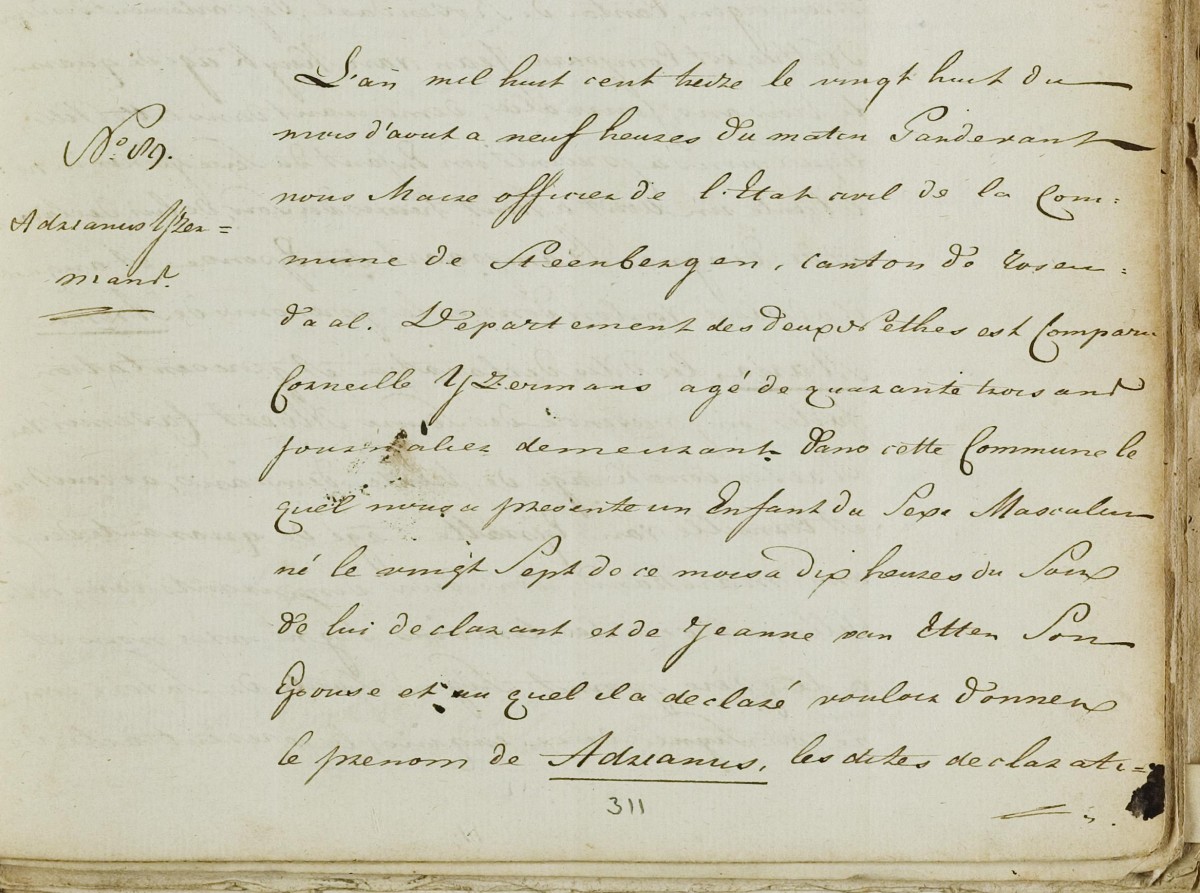 N.° 89.
Adrianus Yzer=
mans.
L'an mil huit cent treize le vingt huit du
mois d'aout a neuf heures du maten Pardevant
nous Maire officier de l'Etat civil de la Com:
mune de Steenbergen, canton de Rosen:
daal. Departement des deux Nethes est Comparu
Corneille Yzermans agé de quarante trois ans
journalier demeurant dans cette Commune le
quel nous a presente un Enfant du Sexe Masculin
né le vingt Sept de ce mois a dix heures du Soir
de lui declarant et de Jeanne van Etten Son
Epouse et au quel il a declaré vouloir donner
le prenom de Adrianus, les dites declarati=
311